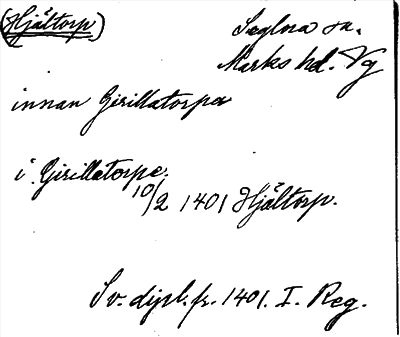 (Hjältorp)
Seglora sn.
Marks hd. Vg
innan Girillatorpa
i Girillatorpe.
10/2 1401 Hjältorp.
Sv. dipl. fr. 1401. I. Reg.